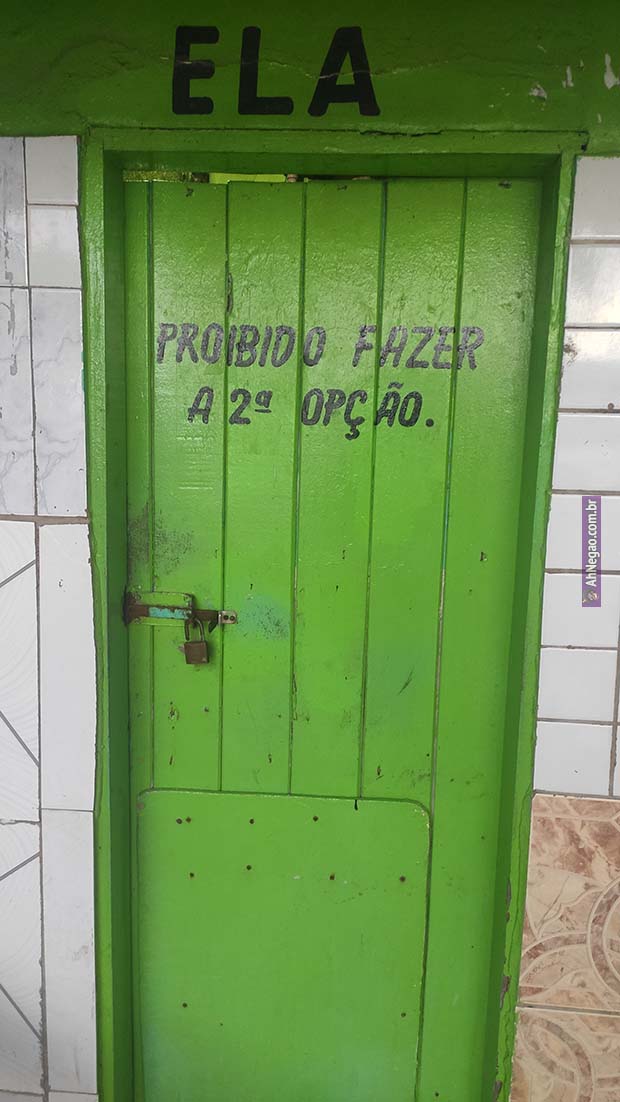 ELA
PROIBIDO FAZER
A 2ª OPÇÃO.
AhNegao.com.br